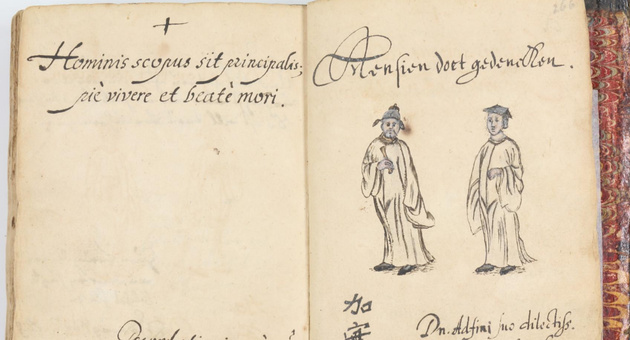 Hominis scopus sit principalis;
piè vivere et beatè mori.
266
Aensien doet gedencken.
加
Dn. Adfini suo dilectiss.